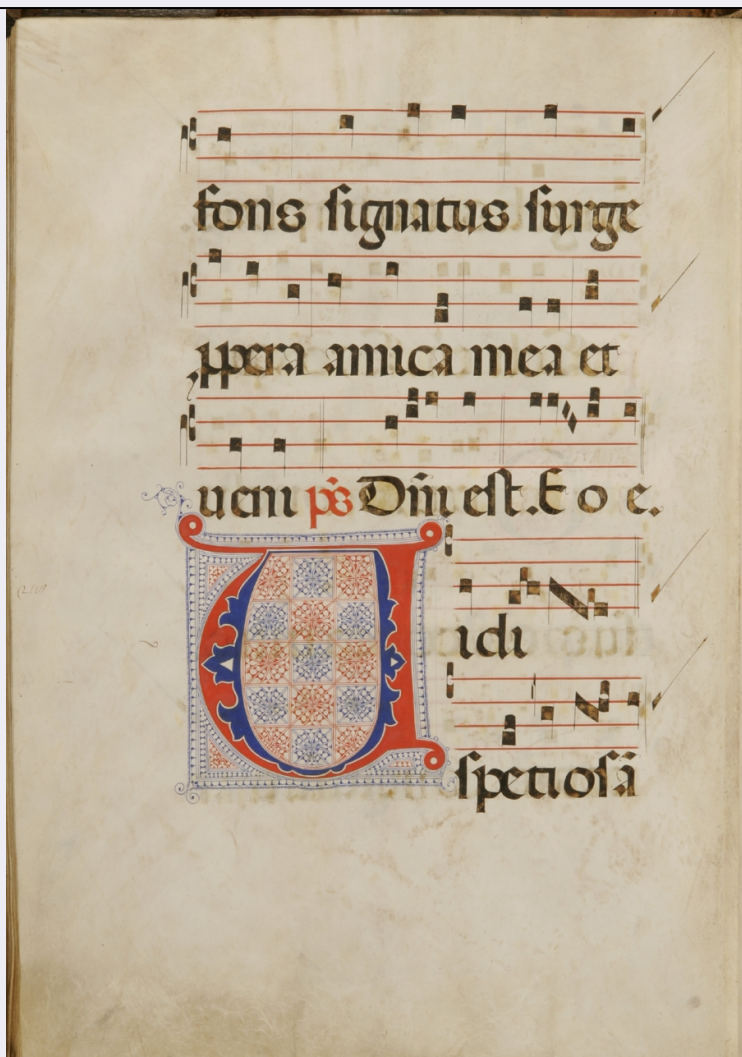 fons signatus surge
ppera amica mea et
ueni ps̄ Dn̄i est. E o e.
Uidi
spetiosā